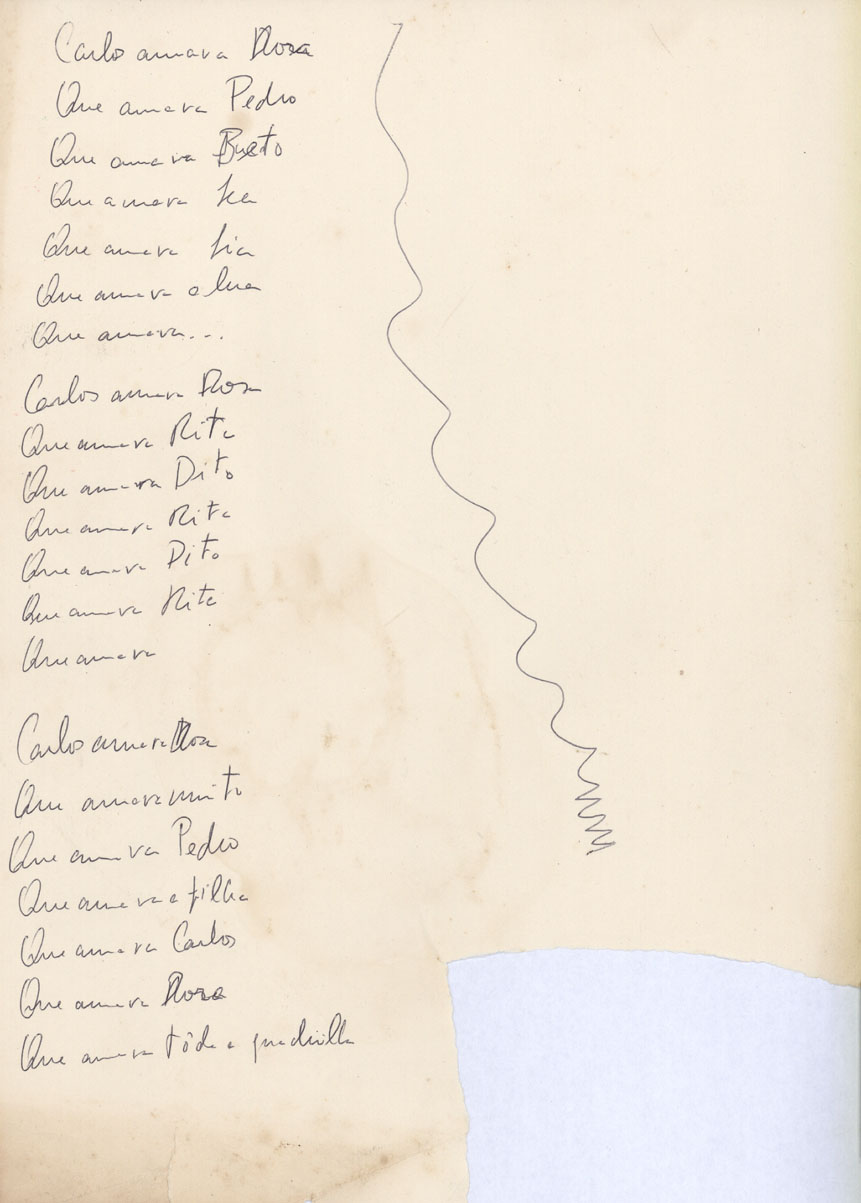 Carlos amava Rosa
Que amava Pedro
Que amava
Que amava
Que amava Lia
Que amava a lua
Que amava...
Carlos amava Rosa
Que amava Rita
Que amava Dito
Que amava Rita
Que amava Dito
Que amava Rita
Que amava
Carlos amava Rosa
Que amava muito
Que amava Pedro
Que amava a filha
Que amava Carlos
Que amava Rosa
Que amava tôda a quadrilha